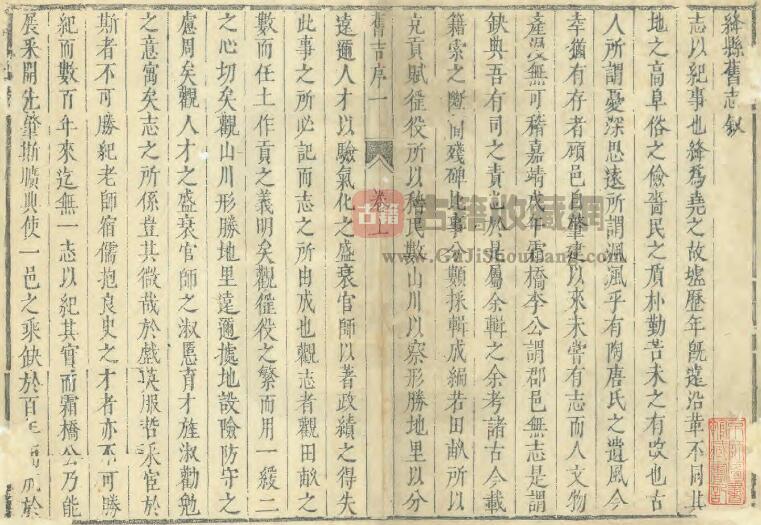 絳縣舊志叙
志以紀事也絳爲堯之故墟歷年旣遠沿革不同其
地之高阜俗之儉嗇民之質朴勤苦未之有改也古
人所謂憂深思遠所謂渢渢乎有陶唐氏之遺風今
幸猶有存者碩邑自肇建以來未嘗有志而人文物
產漫無可稽嘉靖戊午霜橋李公謂郡邑無志是謂
缺典吾有司之責也於是屬余輯之余考諸古今載
籍索之斷間殘碑比事分類採輯成編若田畝所以
充貢賦徭役所以稽民數山川以察形勝地里以分
舊志序一
卷上
遠邇人才以驗氣化之盛衰官師以著政績之得失
此事之所必記而志之所由成也觀志者觀田畝之
數而任土作貢之義明矣觀徭役之繁而用一緩二
之心切矣觀山川形勝地里遠邇據地設險防守之
慮周矣觀人才之盛衰官師之淑慝育才旌淑勸勉
之意寓矣志之所係豈其微哉於戲漢服哲承宦於
斯者不可勝紀老師宿儒抱良史之才者亦不可勝
紀而數百年來迄無一志以紀其實而霜橋公乃能
展釆開先肇斯曠典使一邑之乘缺於百年而成於
古籍
古籍收藏網
www.GuJiShouCang.com